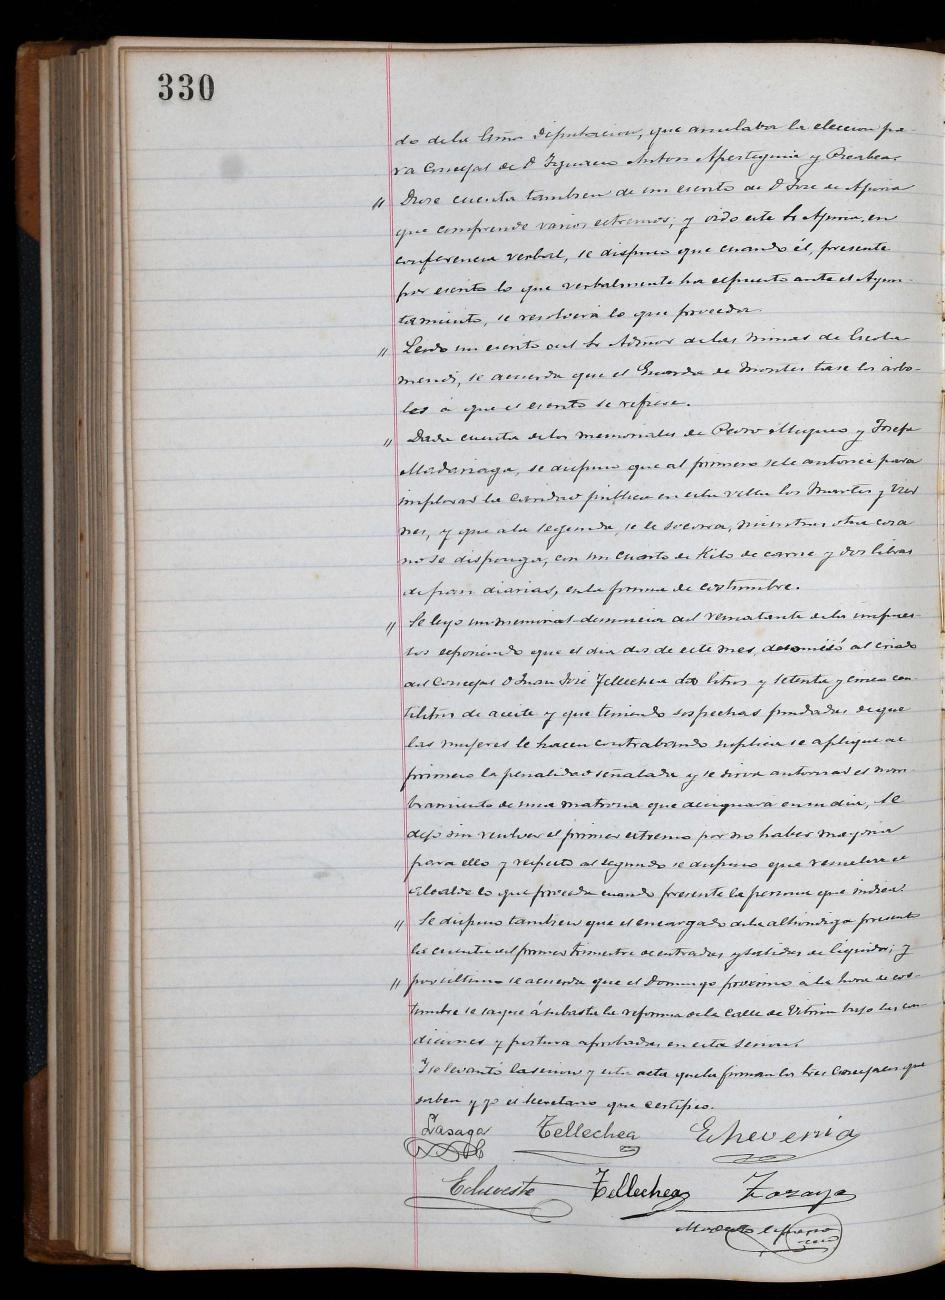 330
do de la Exma Diputacion, que anulaba la eleccion pa-
ra Concejal de D. Higinio Anton Apesteguia y
" Diose cuenta tambien de un escrito de D. Jose de Aporia
que comprende varios extremos; y oido este Sr Aporia, en
conferencia verbal, se dispuso que cuando él, presente
por escrito lo que verbalmente ha expuesto ante el Ayun-
tamiento, se resolverá lo que proceda.
" Leido un escrito del Sr Admor de las minas de Escola
mendi, se acuerda que el Guarda de Montes tase los arbo-
les a que el escrito se refiere.
" Dada cuenta de los memoriales de Pedro Muguro y Josefa
Madariaga, se dispuso que al primero se le autorice para
implorar la caridad publica en esta villa los Martes y Vier
nes, y que a la segunda, se le socorra, mientras otra cosa
no se disponga, con un cuarto de Kilo de carne y dos libras
de pan diarias, en la forma de costumbre.
" Se leyo un memorial-denuncia del rematante de los impues-
tos exponiendo que el dia dos de este mes, decomisó al criado
del Concejal D. Juan José Tellechea dos litros y setenta y cinco cen
tilitros de aceite y que teniendo sospechas fundadas de que
las mujeres le hacen contrabando suplica se aplique al
primero la penalidad señalada y se sirva autorizar el nom-
bramiento de una matrona que designará en su dia, se
dejo sin resolver el primer extremo por no haber mayoria
para ello y respecto al segundo se dispuso que resuelva el
Alcalde lo que proceda cuando presente la persona que indica.
" Se dispuso tambien que el encargado de la alhondiga presente
la cuenta del primer trimestre de entradas y salidas de liquidos; y
" por ultimo se acuerda que el Domingo proximo á la hora de cos-
tumbre se saque á subasta la reforma de la Calle de Vitoria bajo las con
diciones y postura aprobadas en esta sesion.
Y se levantó la sesion y esta acta que la firman los tres Concejales que
saben y yo el Secretario que certifico.
Lasaga Tellechea Echeverria
Echeveste Tellechea Zozaya
Modesto